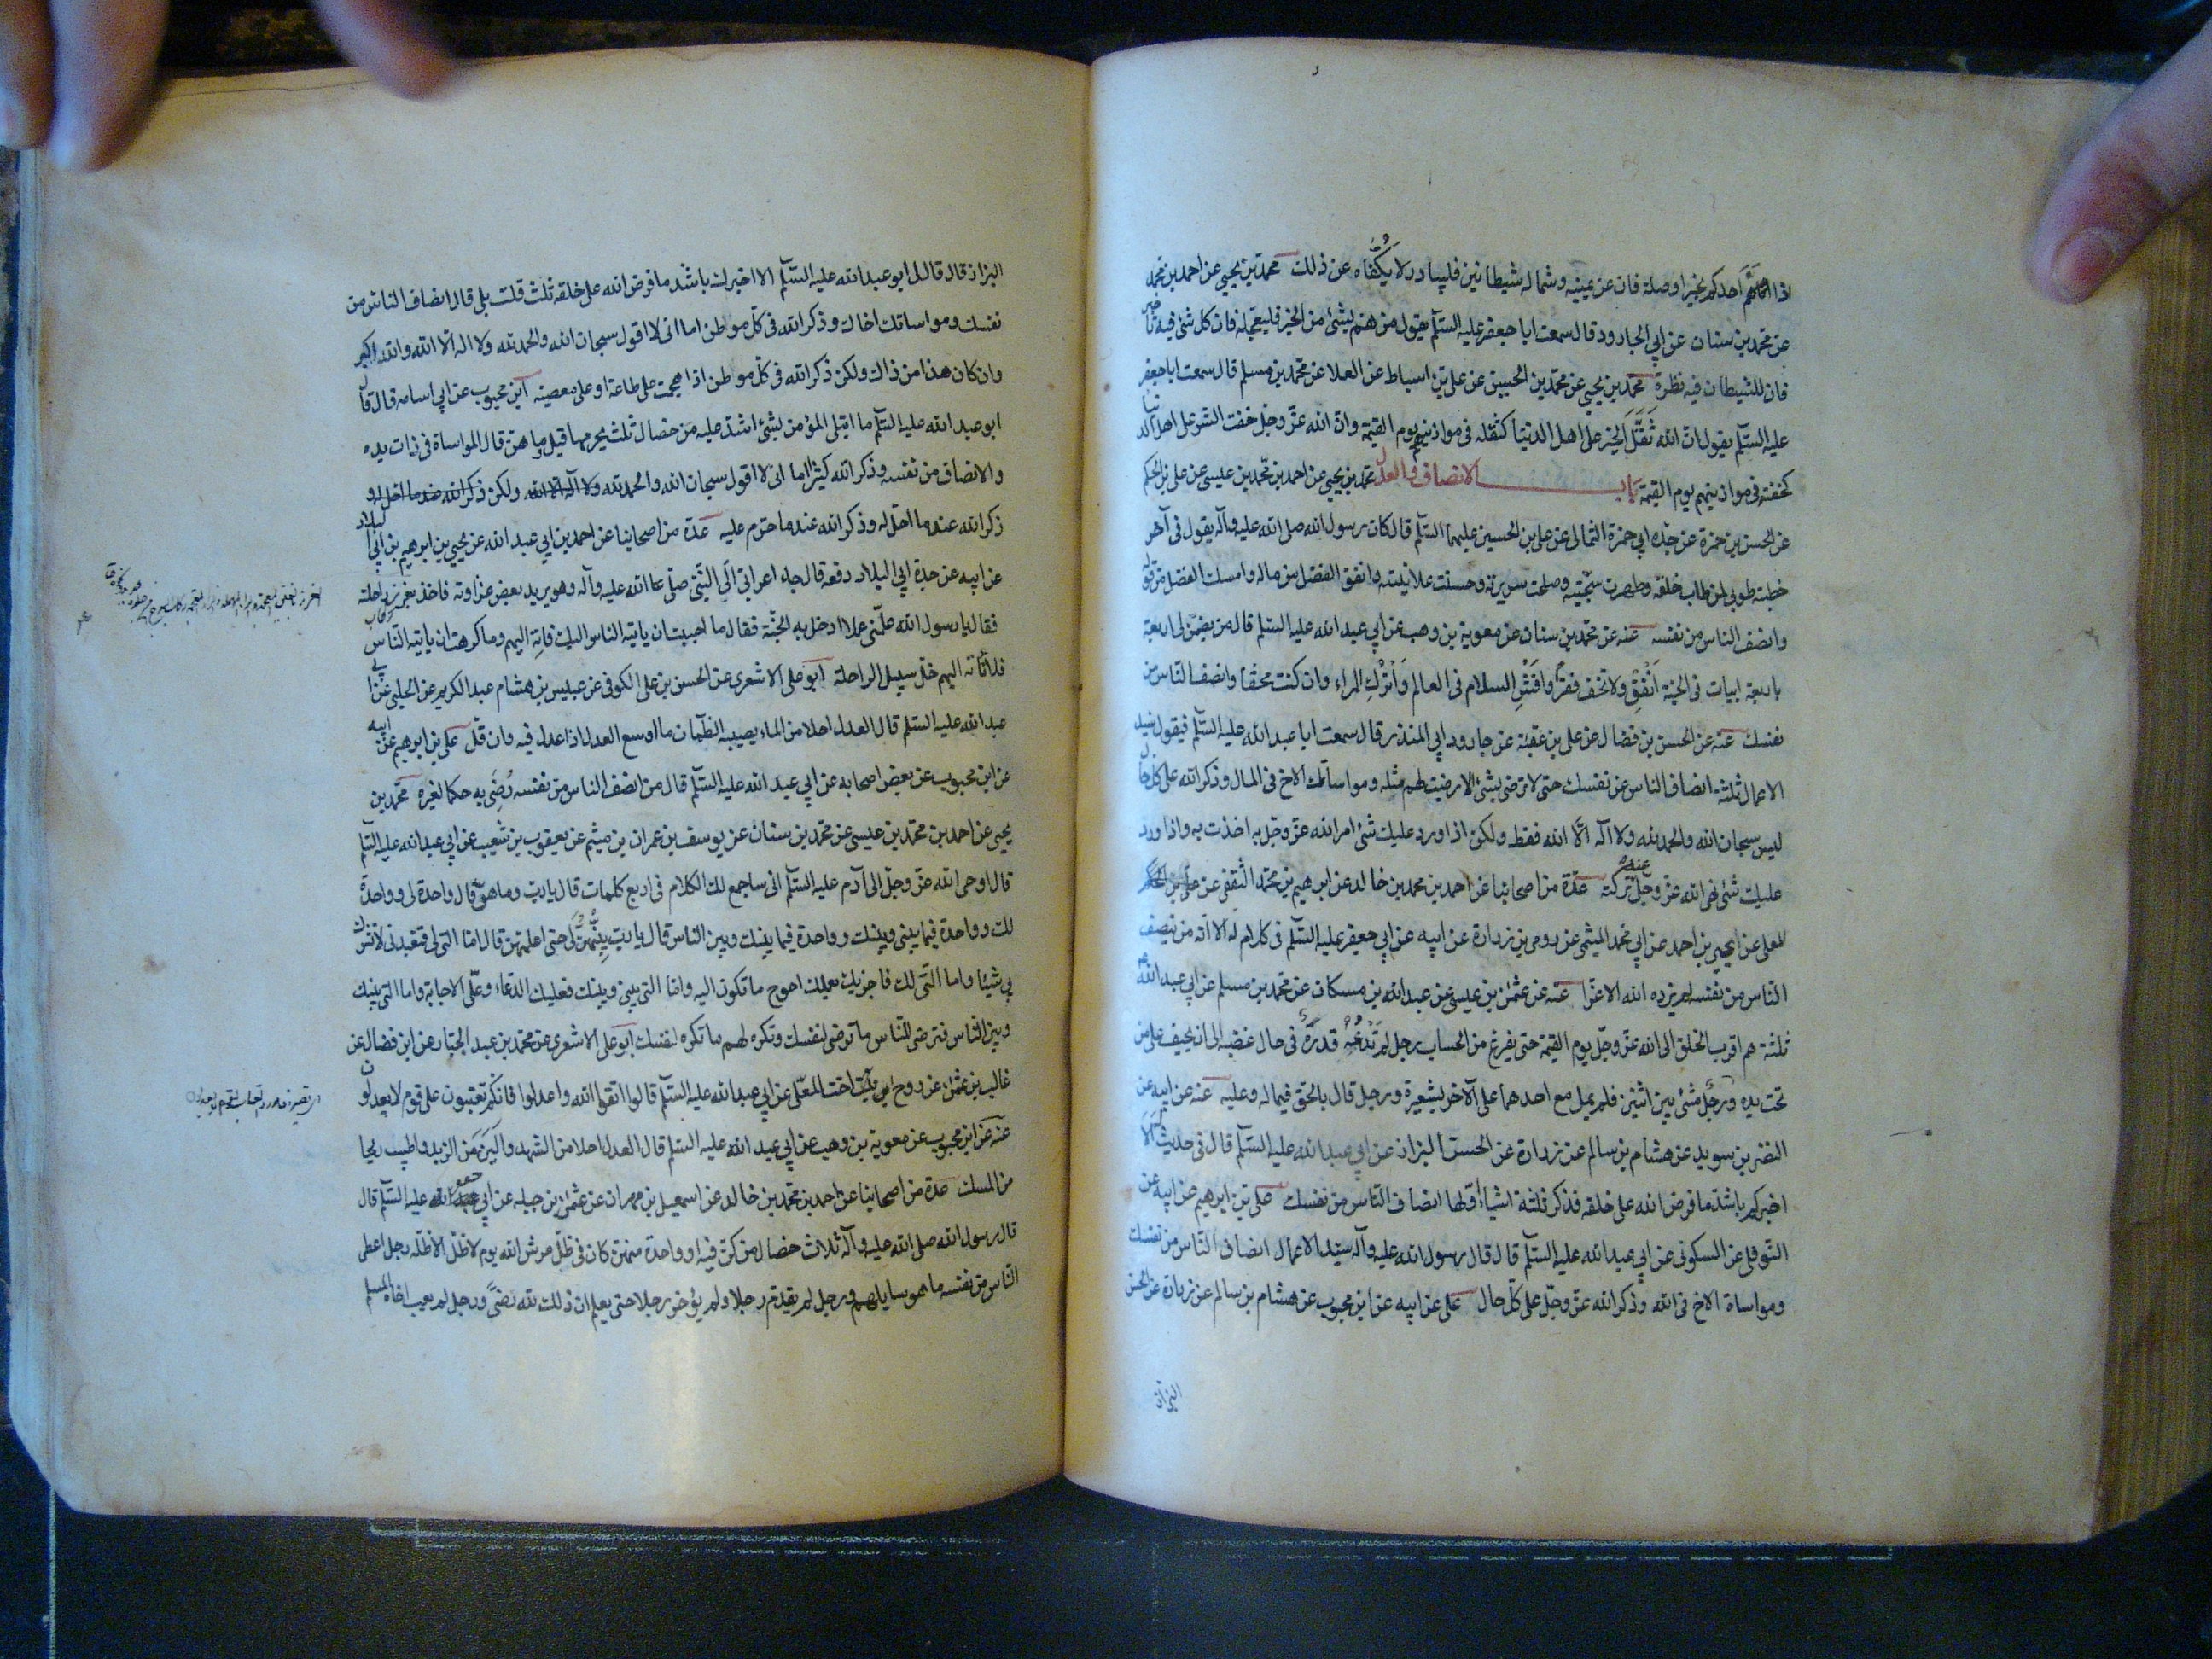 اذا همّ احدكم بخير او صلة فان عن يمينه وشماله شيطانين فليبادر لا يكفّاه عن ذلك محمد بن يحيى عن احمد بن محمد
عن محمد بن سنان عن ابي الجارود قال سمعت ابا جعفر عليه السلم يقول من همّ بشئ من الخير فليعجله فان كل شئ فيه تأخير
فان للشيطان فيه نظرة محمد بن يحيى عن محمد بن الحسين عن علي بن اسباط عن العلا عن محمد بن مسلم قال سمعت ابا جعفر
عليه السلم يقول انّ الله ثَقَّلَ الخير على اهل الدنيا كثقله في موازينهم يوم القيمة وانّ الله عزّ وجلّ خفّف الشر على اهل الدنيا
كخفته في موازينهم يوم القيمة باب الانصاف والعدل محمد بن يحيى عن احمد بن محمد بن عيسى عن علي بن الحكم
عن الحسن بن حمزة عن جدّه ابي حمزة الثمالي عن علي بن الحسين عليهما السلم قال كان رسول الله صلى الله عليه وآله يقول في آخر
خطبته طوبى لمن طاب خلقه وطهرت سجيّته وصلحت سريرته وحسنت علانيته وانفق الفضل من ماله وامسك الفضل من قوله
وانصف الناس من نفسه عنه عن محمد بن سنان عن معوية بن وهب عن ابي عبد الله عليه السلم قال من يضمن لي اربعة
باربعة ابيات في الجنة اَنْفِقْ ولا تخف فقرًا وافشِ السلام في العالم وَاتْرُكِ المراء وان كنت محقّا وانصف الناس من
نفسك عنه عن الحسن بن فضال عن علي بن عقبة عن جارود ابي المنذر قال سمعت ابا عبد الله عليه السلم فيقول سيد
الاعمال ثلثة انصاف الناس عن نفسك حتى لا ترضى بشئ الا رضيت لهم مثله ومواساتك الاخ في المال وذكر الله على كل حال
ليس سبحان الله والحمد لله ولا اله الّا الله فقط ولكن اذا ورد عليك شئ امر الله عزّ وجلّ به اخذت به واذا ورد
عليك شئ نهى الله عزّ وجلّ عنه تركته عدّة من اصحابنا عن احمد بن محمد بن خالد عن ابرهيم بن محمد الثقفي عن علي بن
المعلى عن يحيى بن احمد عن ابي محمد الميثمي عن رومي بن زرارة عن ابيه عن ابي جعفر عليه السلم في كلام له الا انه من ينصف
الناس من نفسه لم يزده الله الا عزّا عنه عن عثمن بن عيسى عن عبد الله بن مسكان عن محمد بن مسلم عن ابي عبد الله
ثلثة هم اقرب الخلق الى الله عزّ وجلّ يوم القيمة حتى يفرغ من الحساب رجل لم تَدْعُهُ قدرةٌ في حال غضبه الى ان يحيف على من
تحت يده ورجل مشى بين اثنين فلم يمل مع احدهما على الآخر بشعيرة ورجل قال بالحق فيما له وعليه عنه عن ابيه عن
النضر بن سويد عن هشام بن سالم عن زرارة عن الحسن البزاز عن ابي عبد الله عليه السلم قال في حديث له الا
اخبركم باشدّ ما فرض الله على خلقه فذكر ثلثة اشياء اوّلها انصاف الناس من نفسك علي بن ابرهيم عن ابيه عن
النوفلي عن السكوني عن ابي عبد الله عليه السلم قال قال رسول الله عليه وآله سيّد الاعمال انصاف الناس من نفسك
ومواساة الاخ في الله وذكر الله عزّ وجلّ على كلّ حال علي عن ابيه عن ابن محبوب عن هشام بن سالم عن زرارة عن الحسن
البزاز
البزاز قال قال لي ابو عبد الله عليه السلم الا اخبرك باشد ما فرض الله على خلقه ثلث قلت بلى قال انصاف الناس من
نفسك ومواساتك اخاك وذكر الله في كلّ موطن اما اني لا اقول سبحان الله والحمد لله ولا اله الا الله والله اكبر
وان كان هذا من ذاك ولكن ذكر الله في كلّ موطن اذا هجمت على طاعة او على معصية ابن محبوب عن ابي اسامة قال قال
ابو عبد الله عليه السلم ما ابتلى المؤمن بشئ اشدّ عليه من خصال ثلث يحرمها قيل وما هنّ قال المواساة في ذات يده
والانصاف من نفسه وذكر الله كثيرا اما اني لا اقول سبحان الله والحمد لله ولا اله الا الله ولكن
ذكر الله عند ما احلّ له وذكر الله عند ما حرّم عليه عدّة من اصحابنا عن احمد بن ابي عبد الله عن يحيى بن ابرهيم بن ابي البلاد
عن ابيه عن جدّه ابي البلاد رفعه قال جاء اعرابيّ الى النبي صلّى الله عليه وآله وهو يريد بعض غزواته فاخذ بغرز راحلته
فقال يا رسول الله علّمني عملا ادخل به الجنّة فقال ما احببت ان يأتيه الناس اليك فأتِه اليهم وما كرهت ان يأتيه الناس
فلا تأته اليهم خلّ سبيل الراحلة ابو علي الاشعري عن الحسن بن علي الكوفي عن عبيس بن هشام عبد الكريم عن الحلبي عن ابي
عبد الله عليه السلم قال العدل احلا من الماء يصيبه الظمآن ما اوسع العدل اذا عدل فيه وان قلّ علي بن ابرهيم عن ابيه
عن ابن محبوب عن بعض اصحابه عن ابي عبد الله عليه السلم قال من انصف الناس من نفسه رُضِيَ به حكما لغيره محمد بن
يحيى عن احمد بن محمد بن عيسى عن محمد بن سنان عن يوسف بن عمران بن ميثم عن يعقوب بن شعيب عن ابي عبد الله عليه السلم
قال اوحى الله عزّ وجلّ الى آدم عليه السلم اني ساجمع لك الكلام في اربع كلمات قال يا ربّ وما هنّ قال واحدة لي وواحدة
لك وواحدة فيما بيني وبينك وواحدة فيما بينك وبين الناس قال يا ربّ بيّنهنّ لي حتى اعلمهنّ قال امّا التي لي فتعبدني لا تشرك
بي شيئا واما التي لك فاجزيك بعملك احوج ما تكون اليه وامّا التي بيني وبينك فعليك الدعاء وعليّ الاجابة واما التي بينك
وبين الناس فترضى للناس ما ترضى لنفسك وتكره لهم ما تكره لنفسك ابو علي الاشعري عن محمد بن عبد الجبّار عن ابن فضال عن
غالب بن عثمن عن روح ابن اخت المعلّى عن ابي عبد الله عليه السلم قالوا اتقوا الله واعدلوا فانكم تعتبون على قوم لا يعدلون
عنه عن ابن محبوب عن معوية بن وهب عن ابي عبد الله عليه السلم قال العدل احلا من الشهد والين من الزبد واطيب ريحا
من المسك عدة من اصحابنا عن احمد بن محمد بن خالد عن اسمعيل بن مهران عن عثمن بن جبله عن ابي جعفر عليه السلم قال
قال رسول الله صلى الله عليه وآله ثلاث خصال من كنّ فيه او واحدة منهنّ كان في ظلّ عرش الله يوم لا ظلّ الا ظلّه رجل اعطى
الناس من نفسه ما هو سايلهم ورجل لم يقدّم رجلا ولم يؤخر رجلا حتى يعلم ان ذلك لله رضىً ورجل لم يعب اخاه المسلم